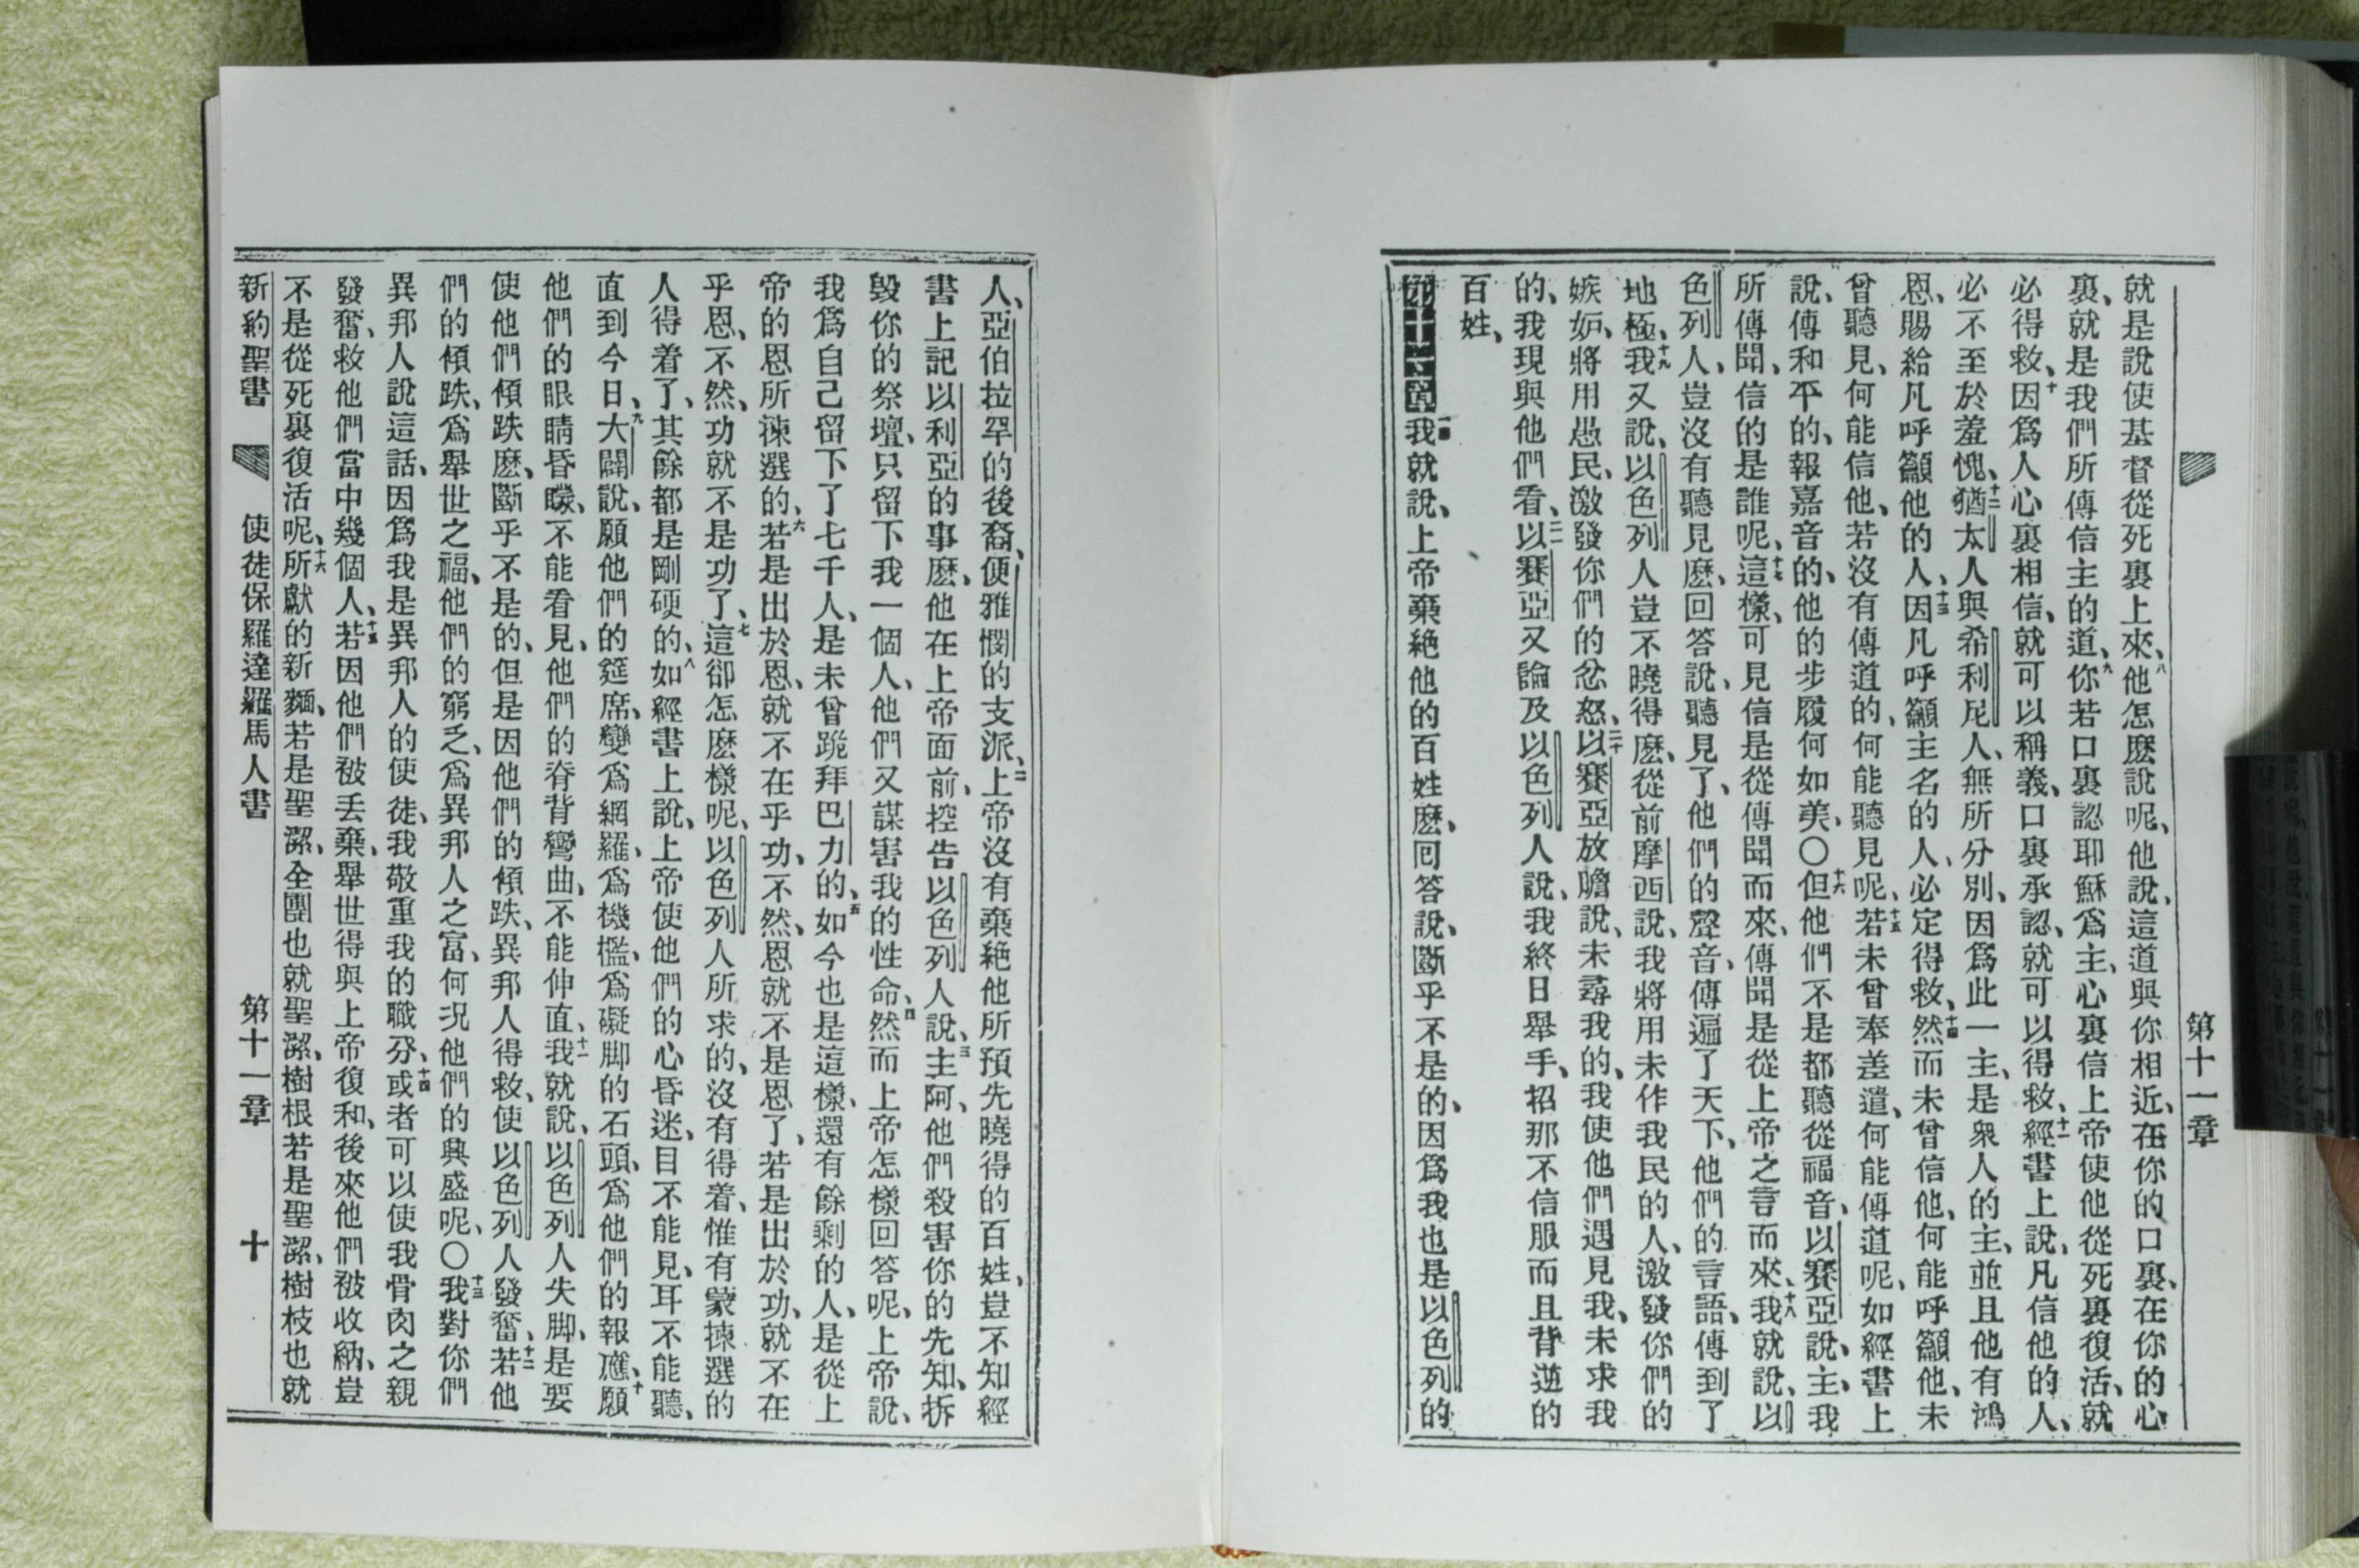 第十一章
就是說使基督從死裏上來、八他怎麽說呢、他說、這道與你相近、在你的口裏、在你的心
裏、就是我們所傳信主的道、九你若口裏認耶穌爲主、心裏信上帝使他從死裏復活、就
必得救、十因爲人心裏相信、就可以稱義、口裏承認、就可以得救、十一經書上說、凡信他的人、
必不至於羞愧、十二猶太人與希利尼人、無所分別、因爲此一主、是衆人的主、並且他有鴻
恩、賜給凡呼籲他的人、十三因凡呼籲主名的人、必定得救、十四然而未曾信他、何能呼籲他、未
曾聽見、何能信他、若沒有傳道的、何能聽見呢、十五若未曾奉差遣、何能傳道呢、如經書上
說、傳和平的、報嘉音的、他的步履何如美、〇十六但他們不是都聽從福音、以賽亞說、主、我
所傳聞、信的是誰呢、十七這樣、可見信是從傳聞而來、傳聞是從上帝之言而來、十八我就說、以
色列人、豈沒有聽見麽、回答說、聽見了、他們的聲音、傳遍了天下、他們的言語、傳到了
地極、十九我又說、以色列人豈不曉得麽、從前摩西說、我將用未作我民的人、激發你們的
嫉妬、將用愚民、激發你們的忿怒、二十以賽亞放膽說、未尋我的、我使他們遇見我、未求我
的、我現與他們看、二一以賽亞又論及以色列人說、我終日舉手、招那不信服而且背逆的
百姓、
第十一章一我就說、上帝棄絶他的百姓麽、回答說、斷乎不是的、因爲我也是以色列的
人、亞伯拉罕的後裔、便雅憫的支派、二上帝沒有棄絶他所預先曉得的百姓、豈不知經
書上記以利亞的事麽、他在上帝面前、控告以色列人說、三主阿、他們殺害你的先知、拆
毀你的祭壇、只留下我一個人、他們又謀害我的性命、四然而上帝怎樣回答呢、上帝說、
我爲自己留下了七千人、是未曾跪拜巴力的、五如今也是這樣、還有餘剩的人、是從上
帝的恩所揀選的、六若是出於恩、就不在乎功、不然、恩就不是恩了、若是出於功、就不在
乎恩、不然、功就不是功了、七這卻怎麽樣呢、以色列人所求的、沒有得着、惟有蒙揀選的
人得着了、其餘都是剛硬的、八如經書上說、上帝使他們的心昏迷、目不能見、耳不能聽、
直到今日、九大闢說、願他們的筵席、變爲網羅、爲機檻、爲礙脚的石頭、爲他們的報應、十願
他們的眼睛昏矇、不能看見、他們的脊背彎曲、不能伸直、十一我就說、以色列人失脚、是要
使他們傾跌麽、斷乎不是的、但是因他們的傾跌、異邦人得救、使以色列人發奮、十二若他
們的傾跌、爲舉世之福、他們的窮乏、爲異邦人之富、何況他們的興盛呢、〇十三我對你們
異邦人說這話、因爲我是異邦人的使徒、我敬重我的職分、十四或者可以使我骨肉之親
發奮、救他們當中幾個人、十五若因他們被丟棄、舉世得與上帝復和、後來他們被收納、豈
不是從死裏復活呢、十六所獻的新麵、若是聖潔、全團也就聖潔、樹根若是聖潔、樹枝也就
新約聖書 使徒保羅達羅馬人書 第十一章 十